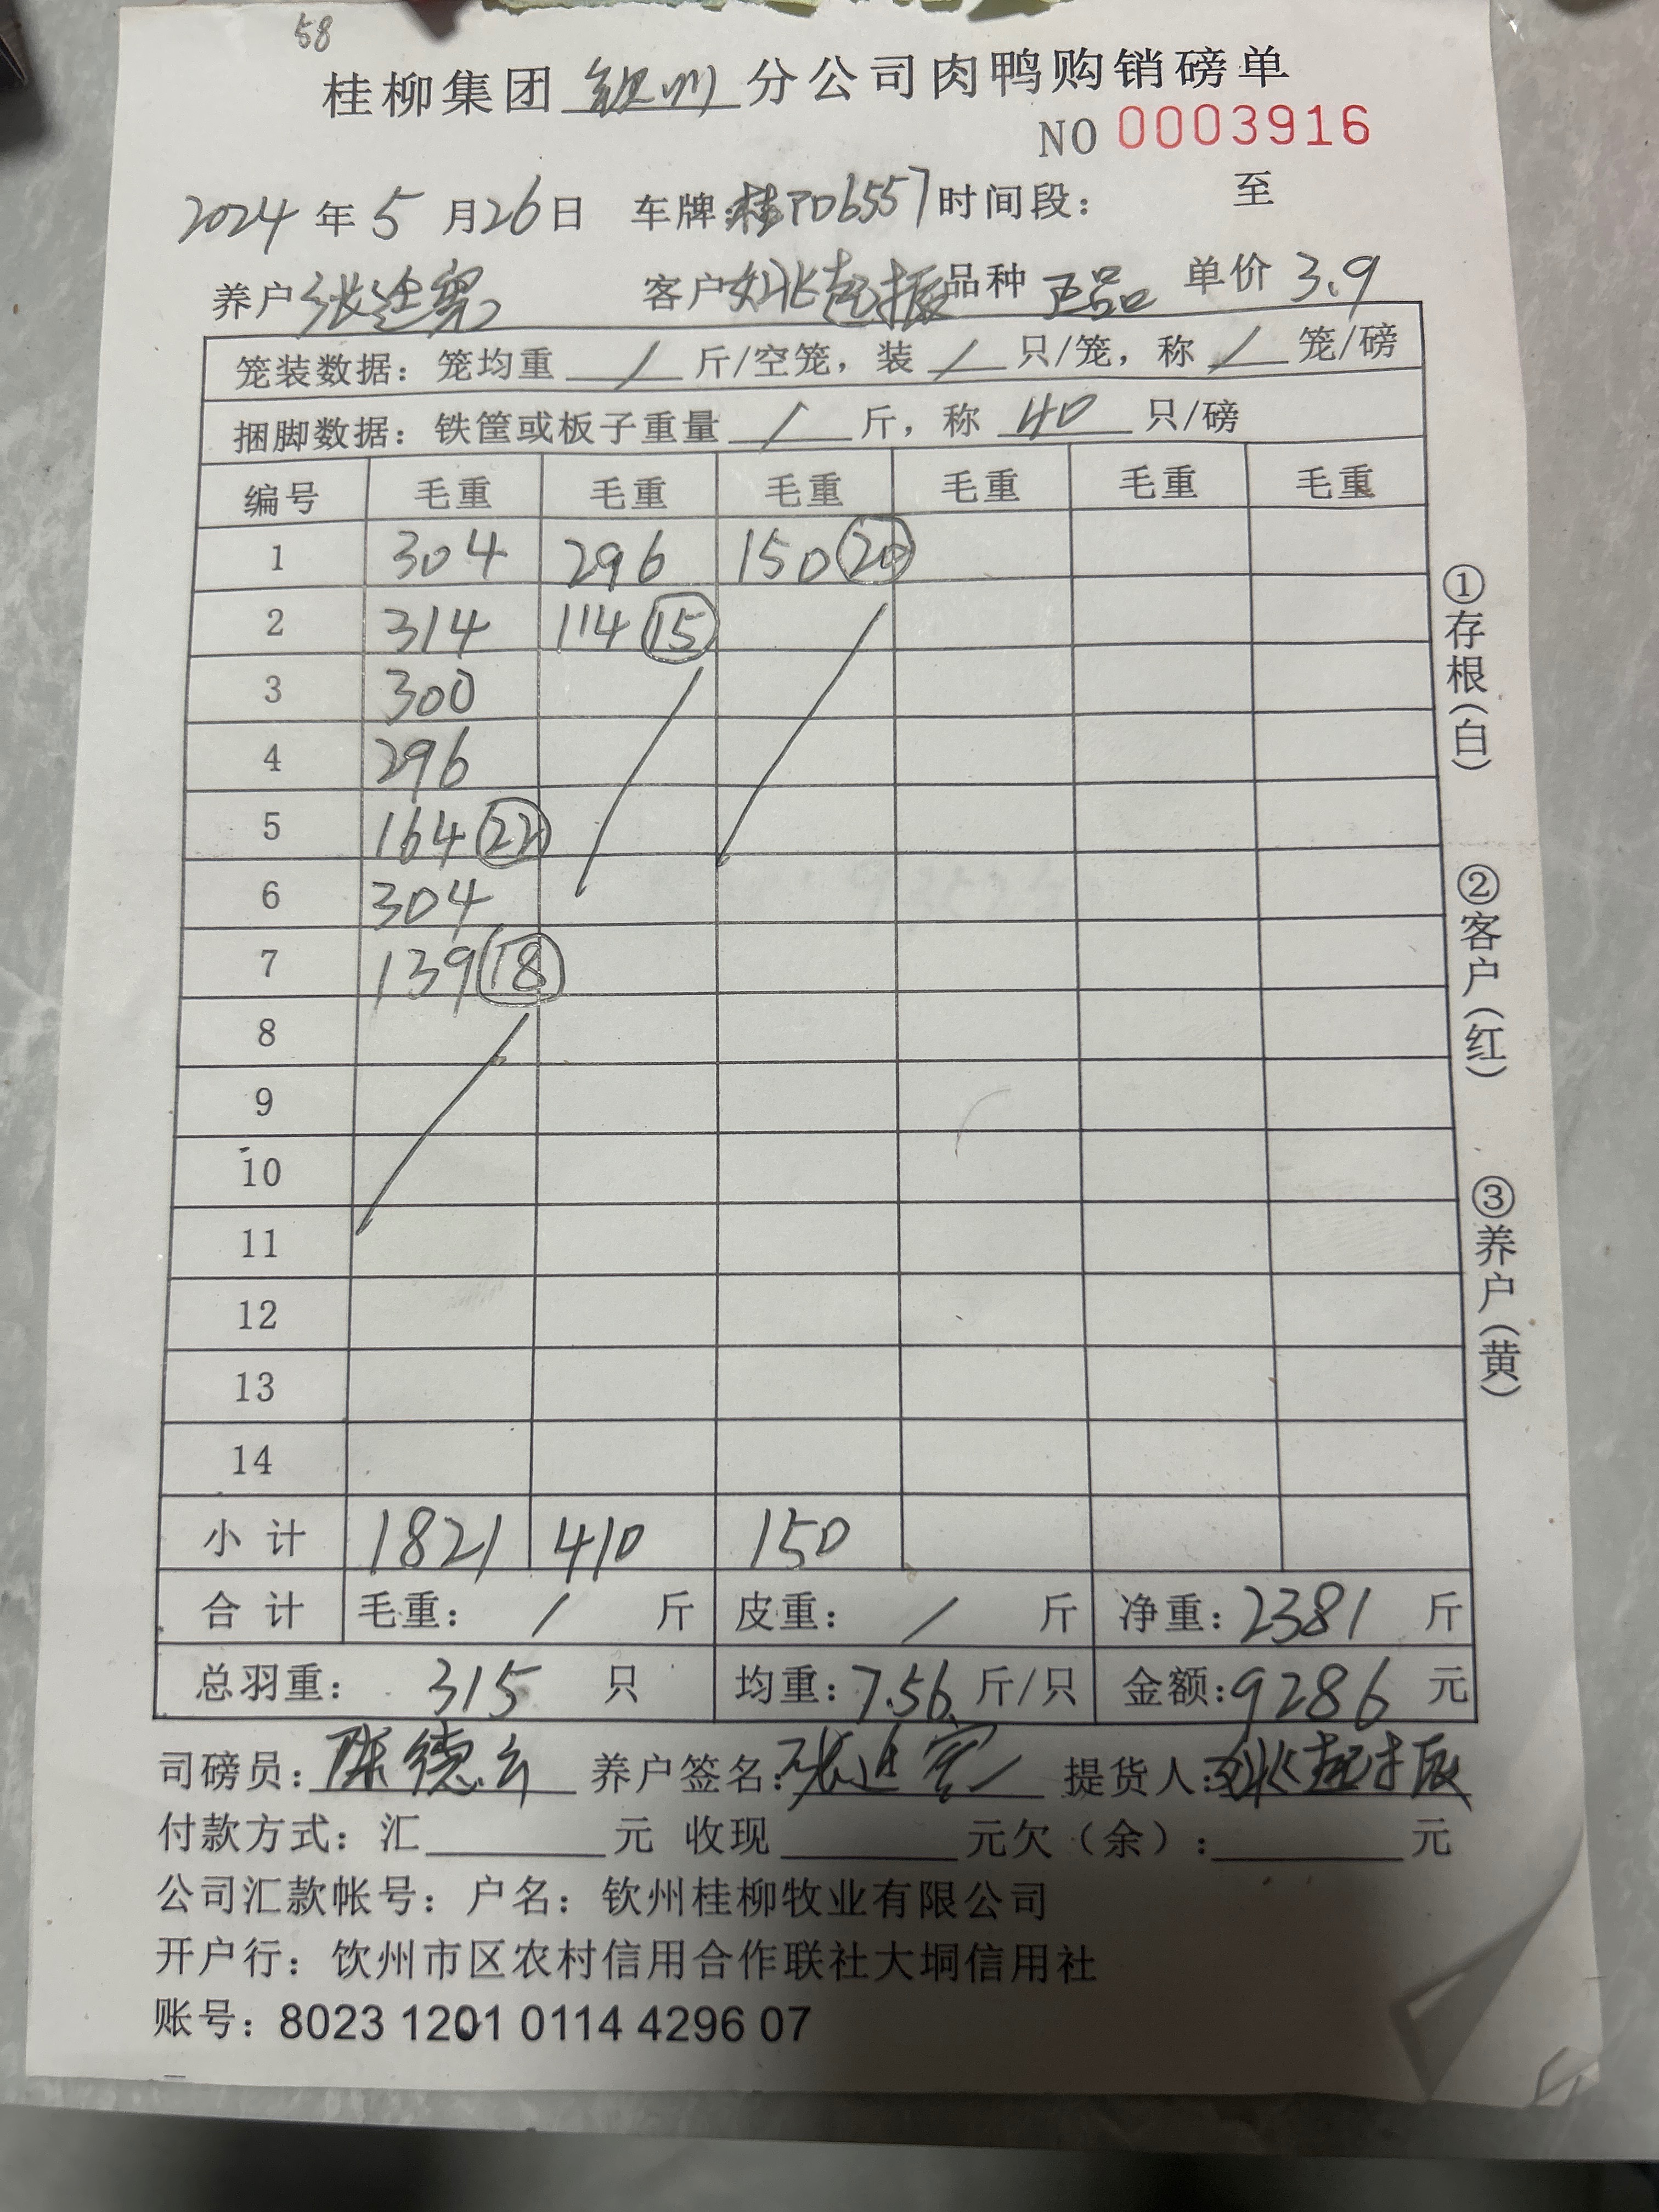 58
桂柳集团 钦州 分公司肉鸭购销磅单
NO 0003916
2024 年 5 月 26 日 车牌:桂PD6557 时间段： 至
养户 张进宽 客户 姚起振 品种 正品 单价 3.9
笼装数据：笼均重 / 斤/空笼，装 / 只/笼，称 / 笼/磅
捆脚数据：铁筐或板子重量 / 斤，称 40 只/磅
编号 毛重 毛重 毛重 毛重 毛重 毛重
1 304 296 150 20
2 314 114 15
3 300
4 296
5 164 22
6 304
7 139 18
8
9
10
11
12
13
14
小计 1821 410 150
合计 毛重： / 斤 皮重： / 斤 净重：2381 斤
总羽重： 315 只 均重：7.56 斤/只 金额：9286 元
司磅员：陈德云 养户签名：张进宽 提货人：姚起振
付款方式：汇 元 收现 元欠（余）： 元
公司汇款帐号：户名：钦州桂柳牧业有限公司
开户行：钦州市区农村信用合作联社大垌信用社
账号：8023 1201 0114 4296 07
①存根（白）
②客户（红）
③养户（黄）